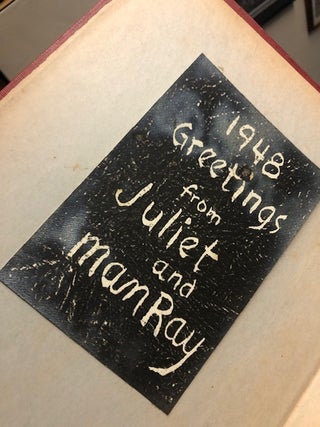 1948
Greetings
from
Juliet
and
manRay